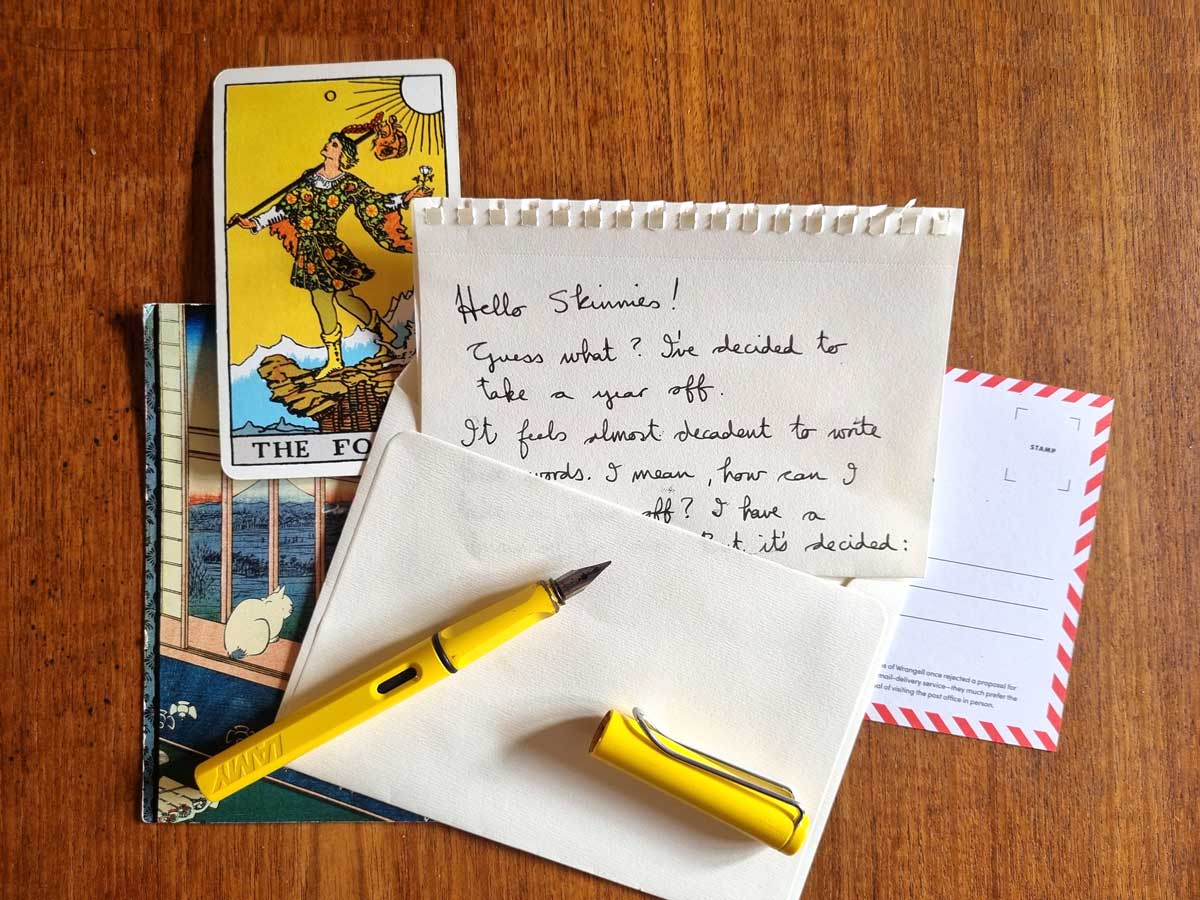 O
THE FO
Hello Skinnies!
Guess what? I've decided to
take a year off.
It feels almost decadent to write
words. I mean, how can I
off? I have a
But it's decided:
STAMP
of Wrangell once rejected a proposal for
mail-delivery service—they much prefer the
of visiting the post office in person.
LAMY